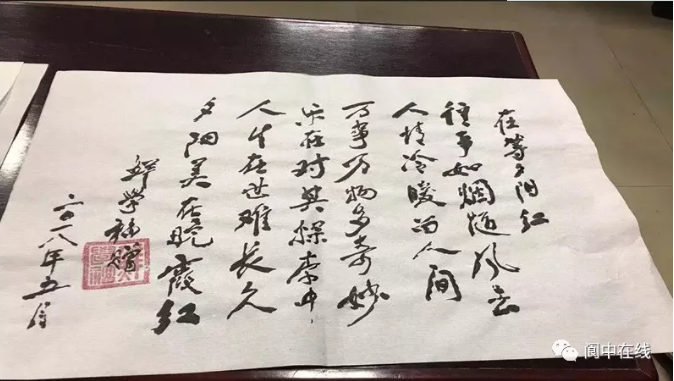 在等夕阳红
往事如烟随风去
人情冷暖留人间
万事万物多奇妙
乐在对其探索中
人生在世难长久
夕阳美在晚霞红
鲜学福赠
二〇一八年五月
阆中在线